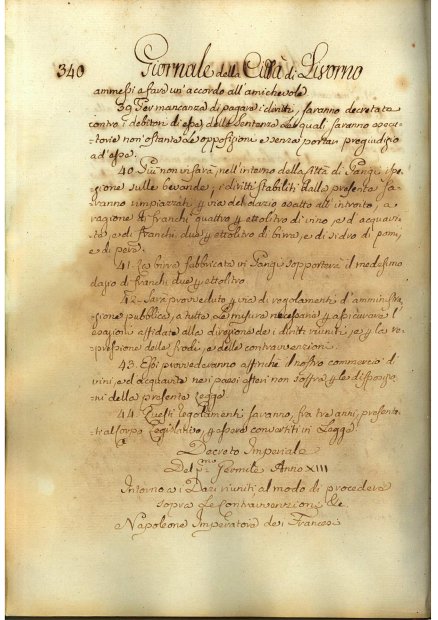 340 Giornale della Città di Livorno
ammessi a fare un'accordo all amichevole
39. Per mancanza di pagare i diritti, saranno decretate
contro i debitori di esse delle sentenze le quali saranno esecu-
torie non'ostante le opposizioni e senza portar pregiudizio
ad'esse.
40. Più non vi sarà nell'interno della Città di Parigi, ispe-
zione sulle bevande, i diritti stabiliti dalla presente sa-
ranno rimpiazzati p via del dazio esatto all'introito, a
ragione di franchi quattro p ettolitro di vino, e di acquavi-
te, e di franchi due p ettolitro di birra, e di sidro di pomi,
e di pere.
41. La birra fabbricata in Parigi sopporterà il medesimo
dazio di franchi due p ettolitro
42. Sarà provveduto p via di regolamenti d'amministra-
zione pubblica, a tutte le misure necessarie p assicurare l'
esazioni affidate alla direzione dei diritti riuniti, e p la re-
pressione delle frodi, e delle contravvenzioni.
43. Essi provvederanno affinchè il nostro commercio di
vini, ed acquavite nei paesi esteri non soffra p le disposizio-
ni della presente Legge.
44. Questi regolamenti saranno, fra tre anni, presenta-
ti al Corpo Legislativo, p essere convertiti in Legge
Decreto Imperiale
Del pmo Germile Anno XIII
Intorno a i Dazi riuniti al modo di procedere
sopra le Contravvenzioni &c.
Napoleone Imperatore dei Francesi